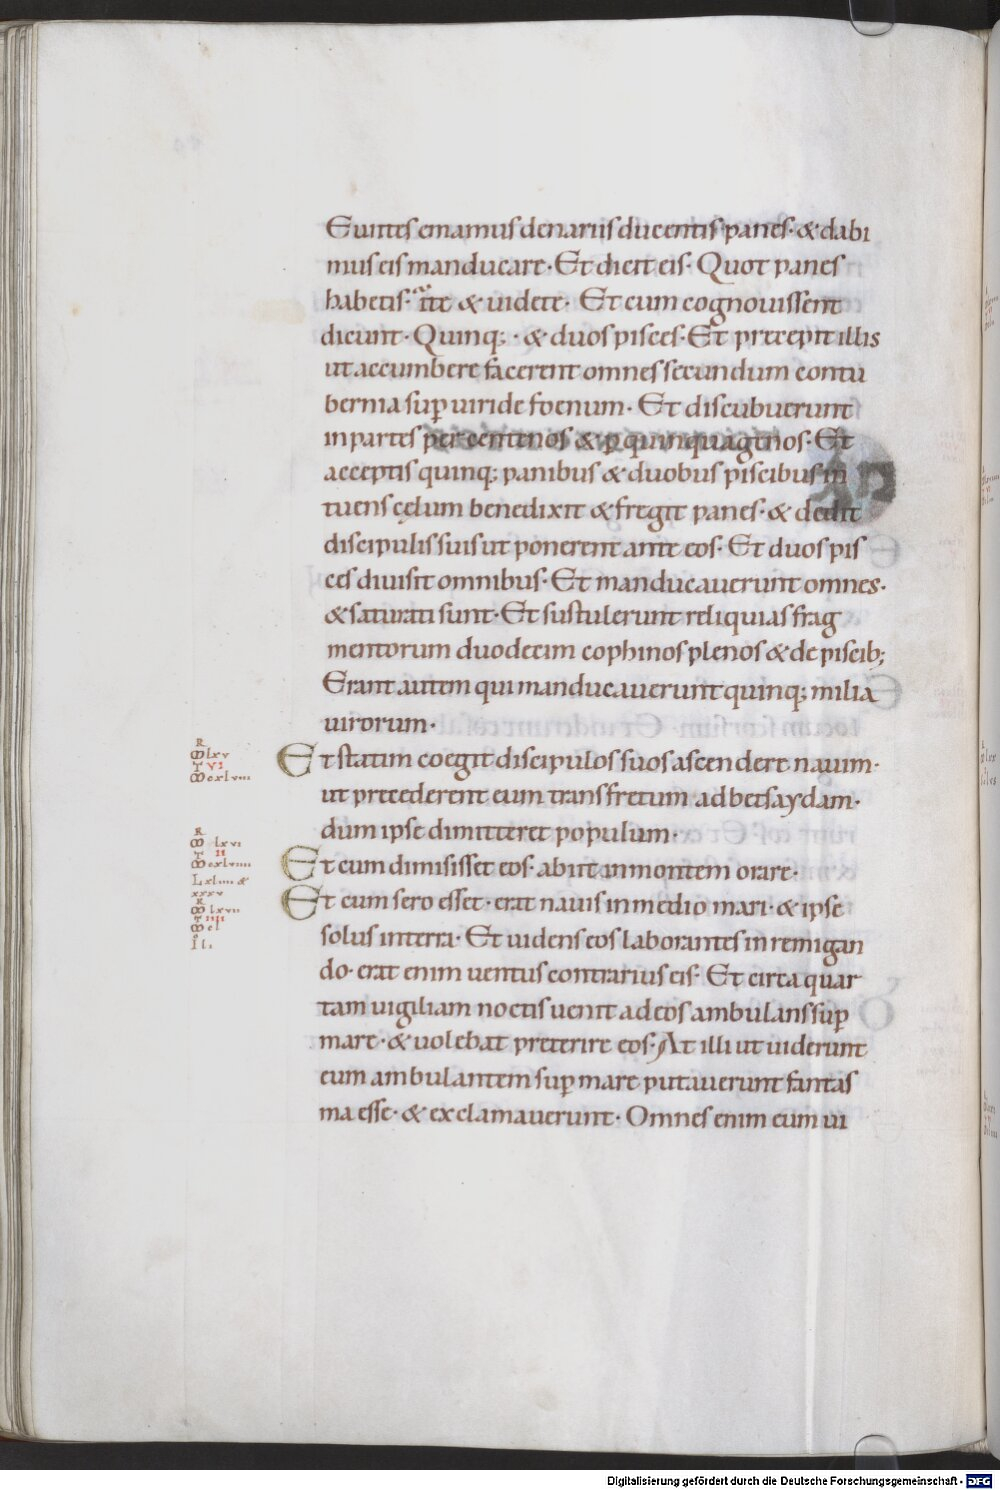 Euntes emamus denariis ducentis panes· & dabi
mus eis manducare· Et dicit eis· Quot panes
habetis· ite & uidete· Et cum cognouissent
dicunt· Quinq;· & duos pisces· Et precepit illis
ut accumbere facerent omnes secundum contu
bernia sup uiride foenum· Et discubuerunt
in partes per centenos & p quinquagenos· Et
acceptis quinq; panibus & duobus piscibus in
tuens cęlum benedixit & fregit panes· & dedit
discipulis suis ut ponerent ante eos· Et duos pis
ces diuisit omnibus· Et manducauerunt omnes·
& saturati sunt· Et sustulerunt reliquias frag
mentorum duodecim cophinos plenos & de piscib;
Erant autem qui manducauerunt quinq; milia
uirorum·
R
M lxv
Et statim coegit discipulos suos ascendere nauim·
VI
M cxlvii
ut precederent eum trans fretum ad betsaydam·
dum ipse dimitteret populum·
R
M lxvi
II
M cxlviiii
Et cum dimisisset eos· abiit in montem orare·
L xliiii &
xxxv
Et cum sero esset· erat nauis in medio mari· & ipse
R
M lxvii
IIII
M cl
solus in terra· Et uidens eos laborantes in remigan
I li
do· erat enim uentus contrarius eis· Et circa quar
tam uigiliam noctis uenit ad eos ambulans sup
mare· & uolebat preterire eos· At illi ut uiderunt
eum ambulantem sup mare putauerunt fantas
ma esse· & exclamauerunt· Omnes enim eum ui
Digitalisierung gefördert durch die Deutsche Forschungsgemeinschaft - DFG